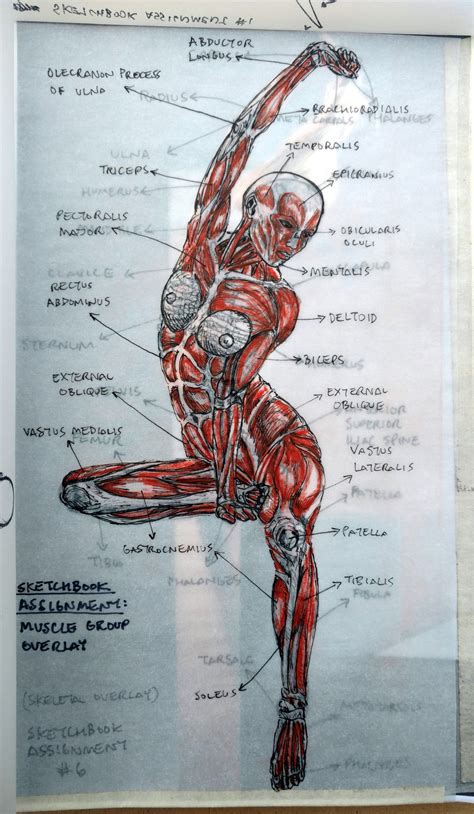 SKETCHBOOK ASSIGNMENT #1
ABDUCTOR
LONGUS
OLECRANON PROCESS
OF ULNA
RADIUS
BRACHIORADIALIS
METACARPALS
PHALANGES
ULNA
TEMPORALIS
TRICEPS
EPICRANIUS
HUMERUS
PECTORALIS
MAJOR
OBICULARIS
OCULI
CLAVICLE
MENTALIS
SCAPULA
RECTUS
ABDOMINUS
DELTOID
STERNUM
BICEPS
EXTERNAL
OBLIQUE
EXTERNAL
OBLIQUE
SUPERIOR
ILIAC SPINE
VASTUS MEDIALIS
FEMUR
VASTUS
LATERALIS
PATELLA
PATELLA
GASTROCNEMIUS
TIBIA
PHALANGES
TIBIALIS
FIBULA
SKETCHBOOK
ASSIGNMENT:
MUSCLE GROUP
OVERLAY
TARSALS
SOLEUS
(SKELETAL OVERLAY)
METATARSALS
SKETCHBOOK
ASSIGNMENT
#6
PHALANGES